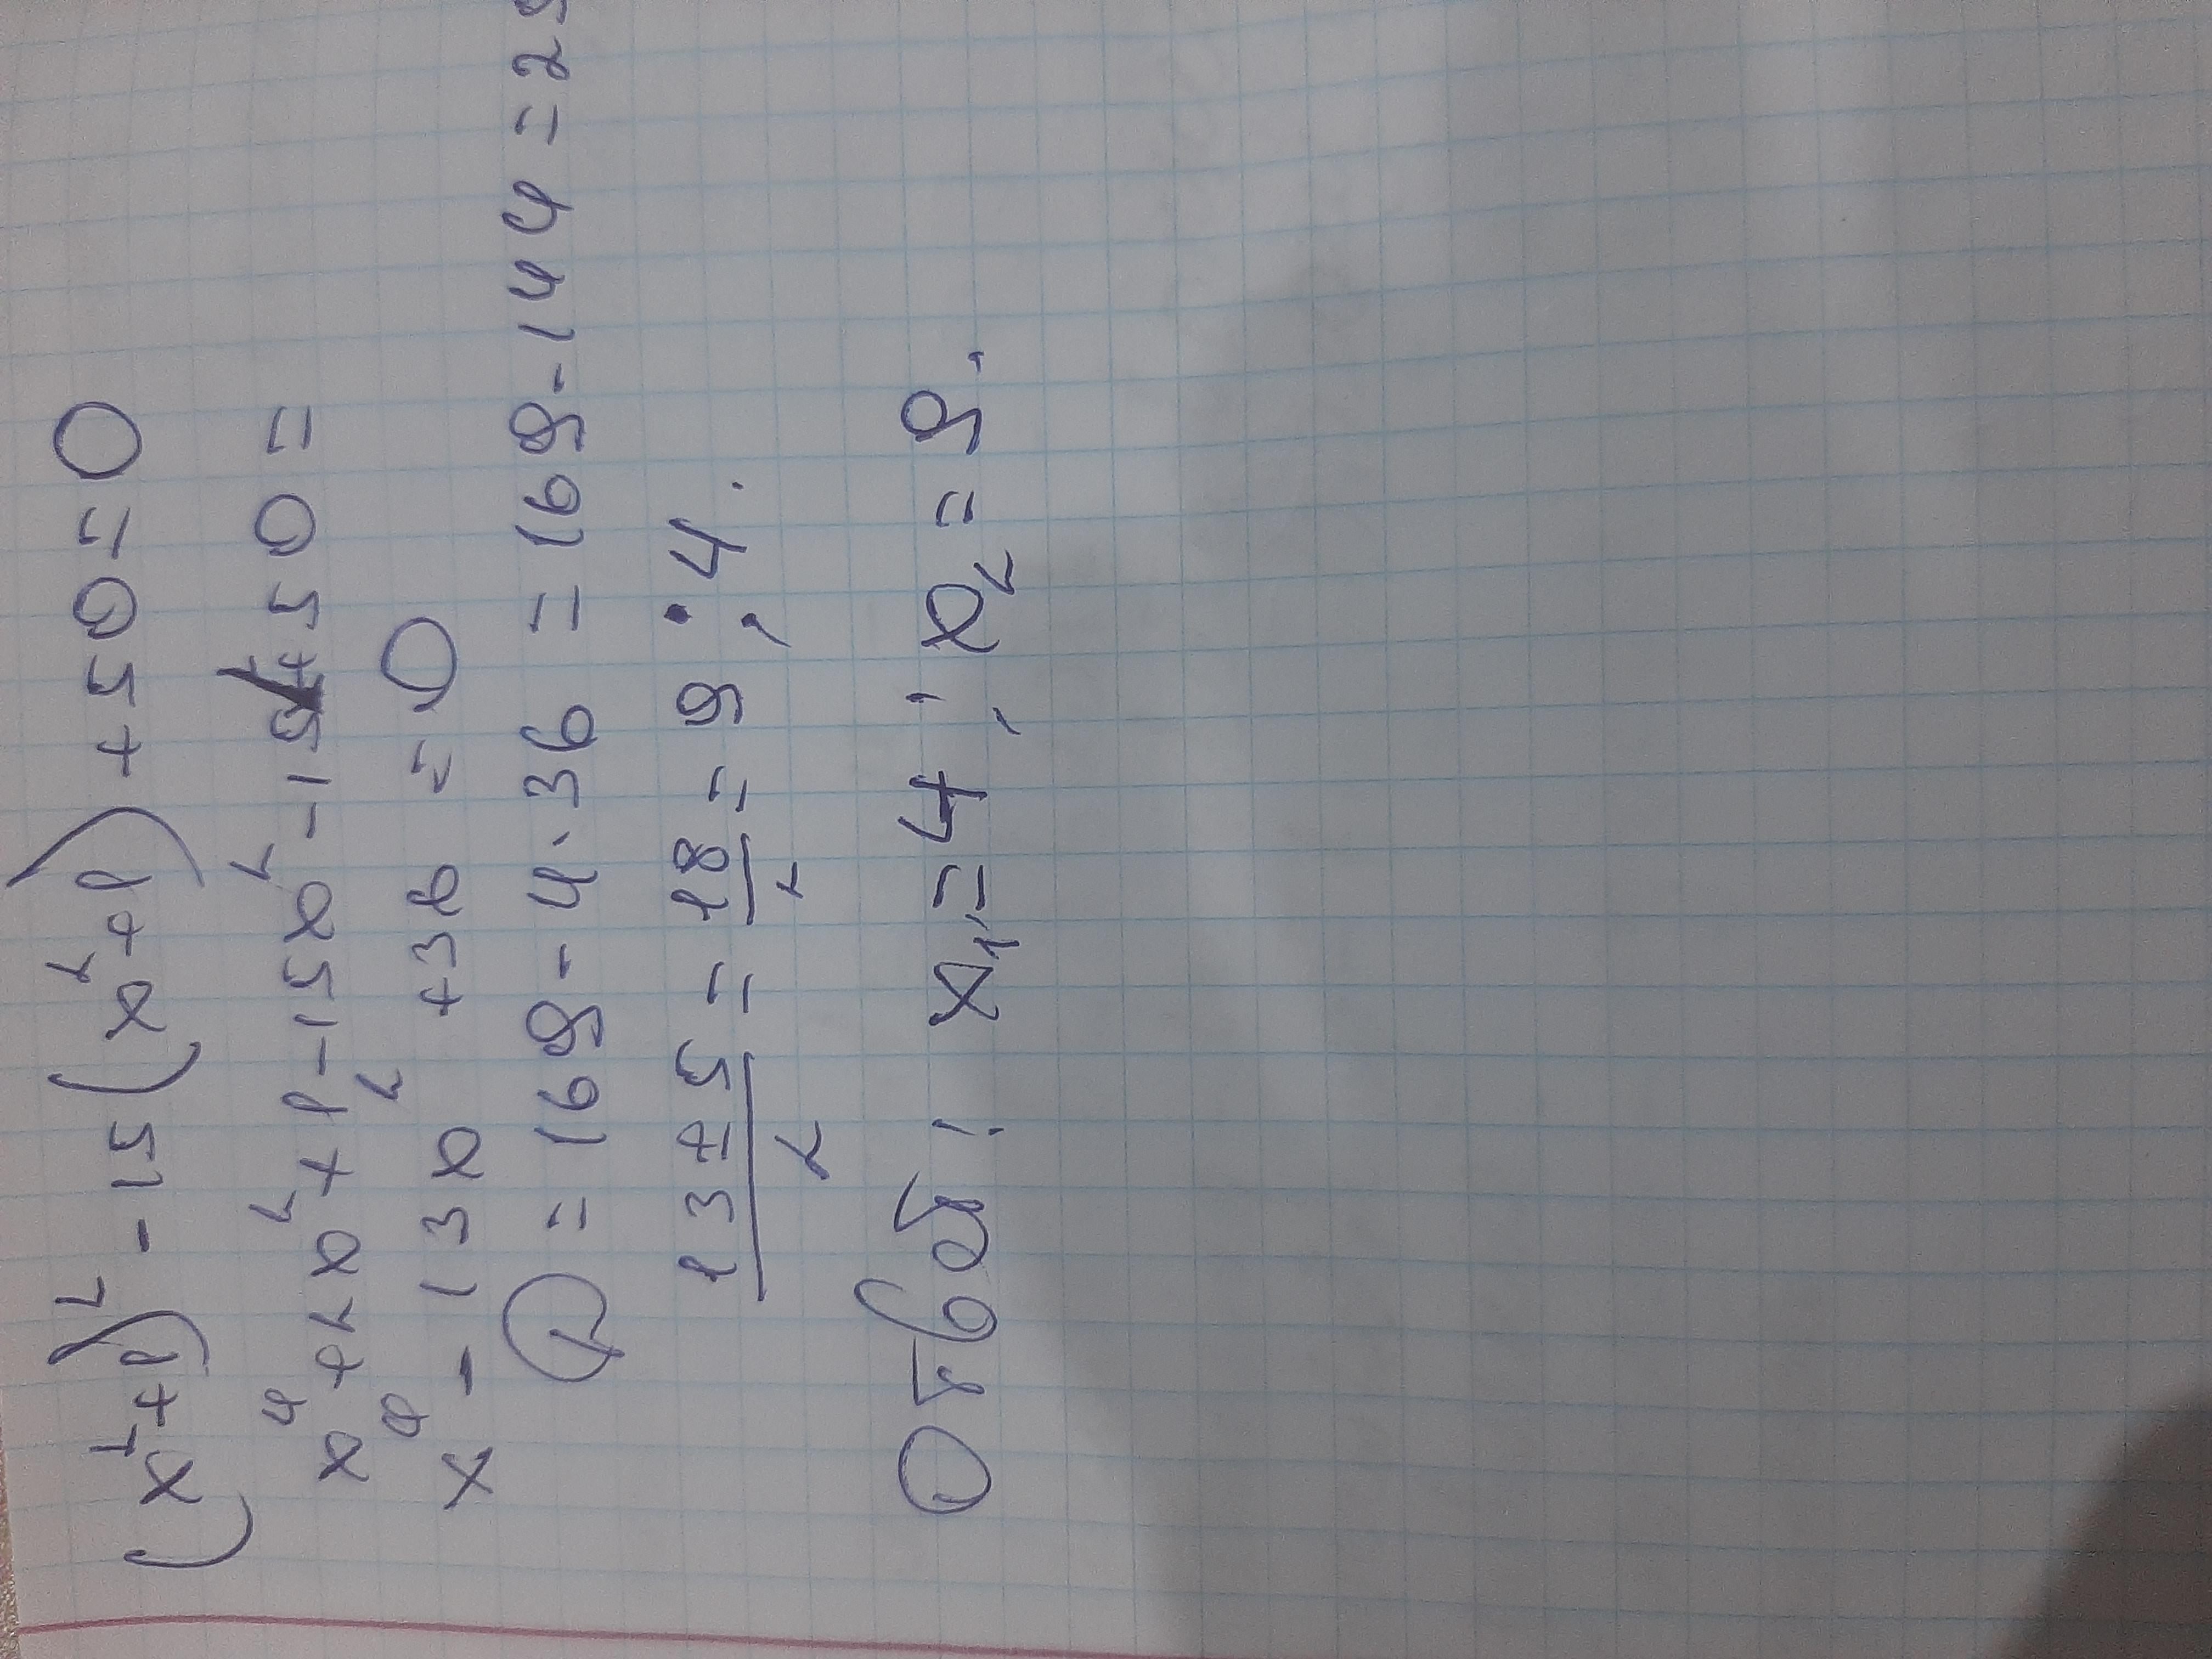 (x²+1)² - 15(x²+1) + 50 = 0
x⁴+2x²+1-15x²-15+50 =
x⁴ - 13x² +36 = 0
D = 169 - 4·36 = 169-144 = 25
13±5/2 = 18/2 = 9; 4.
Ответ: x₁=4; x₂=9.